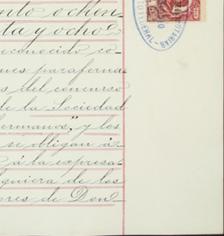 ento ochen-
ta y ocho
reconocido co-
nes paraferna
s del concurso
de la Sociedad
ermanos", y los
se obligan á
á la expresa-
quiera de los
res de Don